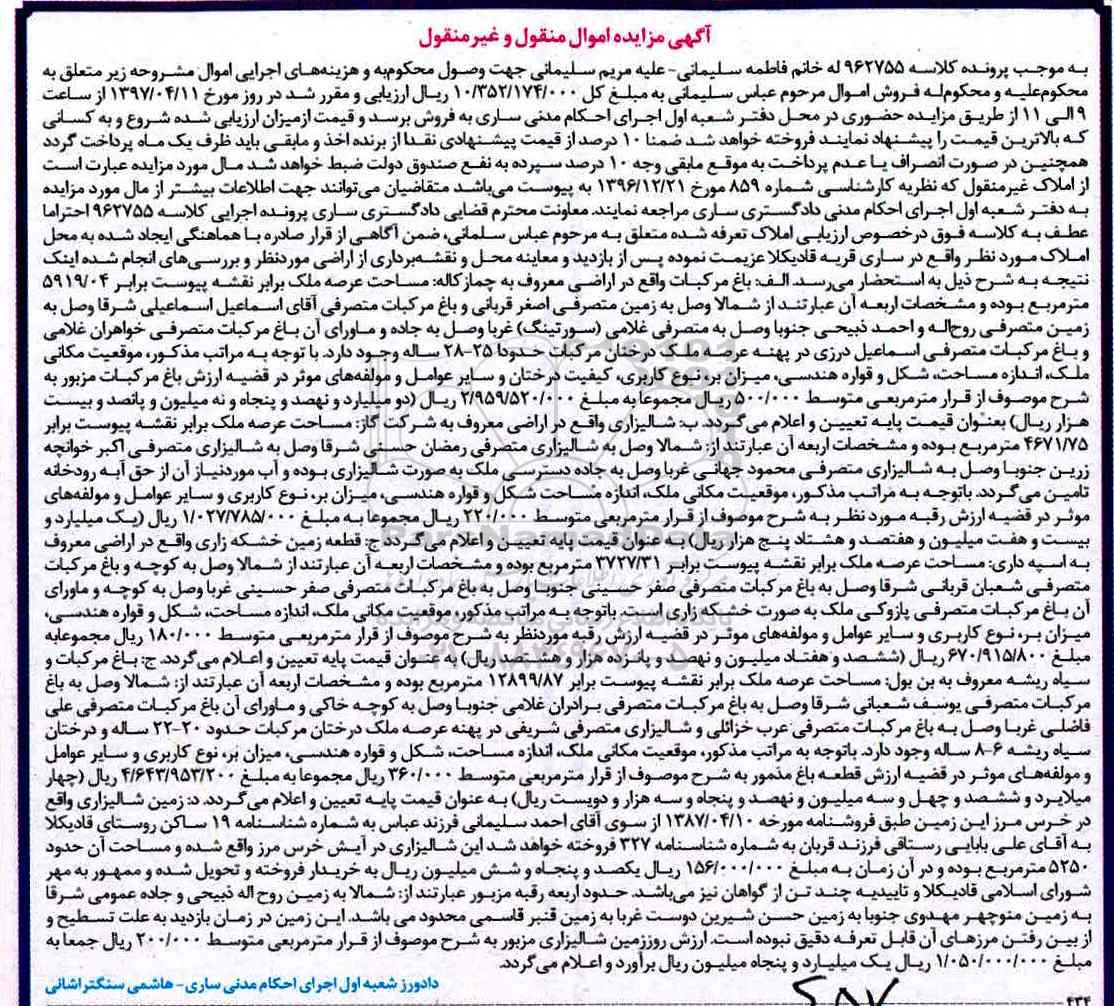 آگهی مزایده اموال منقول و غیرمنقول
به موجب پرونده کلاسه ۹۶۲۷۵۵ له خانم فاطمه سلیمانی- علیه مریم سلیمانی جهت وصول محکوم‌به و هزینه‌های اجرایی اموال مشروحه زیر متعلق به
محکوم‌علیه و محکوم‌له فروش اموال مرحوم عباس سلیمانی به مبلغ کل ۱۰/۳۵۲/۱۷۴/۰۰۰ ریال ارزیابی و مقرر شد در روز مورخ ۱۳۹۷/۰۴/۱۱ از ساعت
۹ الی ۱۱ از طریق مزایده حضوری در محل دفتر شعبه اول اجرای احکام مدنی ساری به فروش برسد و قیمت ازمیزان ارزیابی شده شروع و به کسانی
که بالاترین قیمت را پیشنهاد نمایند فروخته خواهد شد ضمنا ۱۰ درصد از قیمت پیشنهادی نقدا از برنده اخذ و مابقی باید ظرف یک ماه پرداخت گردد
همچنین در صورت انصراف یا عدم پرداخت به موقع مابقی وجه ۱۰ درصد سپرده به نفع صندوق دولت ضبط خواهد شد مال مورد مزایده عبارت است
از املاک غیرمنقول که نظریه کارشناسی شماره ۸۵۹ مورخ ۱۳۹۶/۱۲/۲۱ به پیوست می‌باشد متقاضیان می‌توانند جهت اطلاعات بیشتر از مال مورد مزایده
به دفتر شعبه اول اجرای احکام مدنی دادگستری ساری مراجعه نمایند. معاونت محترم قضایی دادگستری ساری پرونده اجرایی کلاسه ۹۶۲۷۵۵ احتراما
عطف به کلاسه فوق درخصوص ارزیابی املاک تعرفه شده متعلق به مرحوم عباس سلمانی، ضمن آگاهی از قرار صادره با هماهنگی ایجاد شده به محل
املاک مورد نظر واقع در ساری قریه قادیکلا عزیمت نموده پس از بازدید و معاینه محل و نقشه‌برداری از اراضی موردنظر و بررسی‌های انجام شده اینک
نتیجه به شرح ذیل به استحضار می‌رسد. الف: باغ مرکبات واقع در اراضی معروف به چمازکاله: مساحت عرصه ملک برابر نقشه پیوست برابر ۵۹۱۹/۰۴
مترمربع بوده و مشخصات اربعه آن عبارتند از شمالا وصل به زمین متصرفی اصغر قربانی و باغ مرکبات متصرفی آقای اسماعیل اسماعیلی شرقا وصل به
زمین متصرفی روح‌اله و احمد ذبیحی جنوبا وصل به متصرفی غلامی (سورتینگ) غربا وصل به جاده و ماورای آن باغ مرکبات متصرفی خواهران غلامی
و باغ مرکبات متصرفی اسماعیل درزی در پهنه عرصه ملک درختان مرکبات حدودا ۲۵-۲۸ ساله وجود دارد. با توجه به مراتب مذکور، موقعیت مکانی
ملک، اندازه مساحت، شکل و قواره هندسی، میزان بر، نوع کاربری، کیفیت درختان و سایر عوامل و مولفه‌های موثر در قضیه ارزش باغ مرکبات مزبور به
شرح موصوف از قرار مترمربعی متوسط ۵۰۰/۰۰۰ ریال مجموعا به مبلغ ۲/۹۵۹/۵۲۰/۰۰۰ ریال (دو میلیارد و نهصد و پنجاه و نه میلیون و پانصد و بیست
هزار ریال) بعنوان قیمت پایه تعیین و اعلام می‌گردد. ب: شالیزاری واقع در اراضی معروف به شرکت گاز: مساحت عرصه ملک برابر نقشه پیوست برابر
۴۶۷۱/۷۵ مترمربع بوده و مشخصات اربعه آن عبارتند از: شمالا وصل به شالیزاری متصرفی رمضان حسنی شرقا وصل به شالیزاری متصرفی اکبر خوانچه
زرین جنوبا وصل به شالیزاری متصرفی محمود جهانی غربا وصل به جاده دسترسی ملک به صورت شالیزاری بوده و آب موردنیاز آن از حق آبه رودخانه
تامین می‌گردد. باتوجه به مراتب مذکور، موقعیت مکانی ملک، اندازه مساحت شکل و قواره هندسی، میزان بر، نوع کاربری و سایر عوامل و مولفه‌های
موثر در قضیه ارزش رقبه مورد نظر به شرح موصوف از قرار مترمربعی متوسط ۲۲۰/۰۰۰ ریال مجموعا به مبلغ ۱/۰۲۷/۷۸۵/۰۰۰ ریال (یک میلیارد و
بیست و هفت میلیون و هفتصد و هشتاد پنج هزار ریال) به عنوان قیمت پایه تعیین و اعلام می‌گردد ج: قطعه زمین خشکه زاری واقع در اراضی معروف
به اسپه داری: مساحت عرصه ملک برابر نقشه پیوست برابر ۳۷۲۷/۳۱ مترمربع بوده و مشخصات اربعه آن عبارتند از شمالا وصل به کوچه و باغ مرکبات
متصرفی شعبان قربانی شرقا وصل به باغ مرکبات متصرفی صفر حسینی جنوبا وصل به باغ مرکبات متصرفی صفر حسینی غربا وصل به کوچه و ماورای
آن باغ مرکبات متصرفی پازوکی ملک به صورت خشکه زاری است. باتوجه به مراتب مذکور، موقعیت مکانی ملک، اندازه مساحت، شکل و قواره هندسی،
میزان بر، نوع کاربری و سایر عوامل و مولفه‌های موثر در قضیه ارزش رقبه موردنظر به شرح موصوف از قرار مترمربعی متوسط ۱۸۰/۰۰۰ ریال مجموعابه
مبلغ ۶۷۰/۹۱۵/۸۰۰ ریال (ششصد و هفتاد میلیون و نهصد و پانزده هزار و هشتصد ریال) به عنوان قیمت پایه تعیین و اعلام می‌گردد. ج: باغ مرکبات و
سیاه ریشه معروف به بن بول: مساحت عرصه ملک برابر نقشه پیوست برابر ۱۲۸۹۹/۸۷ مترمربع بوده و مشخصات اربعه آن عبارتند از: شمالا وصل به باغ
مرکبات متصرفی یوسف شعبانی شرقا وصل به باغ مرکبات متصرفی برادران غلامی جنوبا وصل به کوچه خاکی و ماورای آن باغ مرکبات متصرفی علی
فاضلی غربا وصل به باغ مرکبات متصرفی عرب خزائلی و شالیزاری متصرفی شریفی در پهنه عرصه ملک درختان مرکبات حدود ۲۰-۲۲ ساله و درختان
سیاه ریشه ۶-۸ ساله وجود دارد. باتوجه به مراتب مذکور، موقعیت مکانی ملک، اندازه مساحت، شکل و قواره هندسی، میزان بر، نوع کاربری و سایر عوامل
و مولفه‌های موثر در قضیه ارزش قطعه باغ مذمور به شرح موصوف از قرار مترمربعی متوسط ۳۶۰/۰۰۰ ریال مجموعا به مبلغ ۴/۶۴۳/۹۵۳/۲۰۰ ریال (چهار
میلایرد و ششصد و چهل و سه میلیون و نهصد و پنجاه و سه هزار و دویست ریال) به عنوان قیمت پایه تعیین و اعلام می‌گردد. د: زمین شالیزاری واقع
در خرس مرز این زمین طبق فروشنامه مورخه ۱۳۸۷/۰۴/۱۰ از سوی آقای احمد سلیمانی فرزند عباس به شماره شناسنامه ۱۹ ساکن روستای قادیکلا
به آقای علی بابایی رستاقی فرزند قربان به شماره شناسنامه ۳۲۷ فروخته خواهد شد این شالیزاری در آیش خرس مرز واقع شده و مساحت آن حدود
۵۲۵۰ مترمربع بوده و در آن زمان به مبلغ ۱۵۶/۰۰۰/۰۰۰ ریال یکصد و پنجاه و شش میلیون ریال به خریدار فروخته و تحویل شده و ممهور به مهر
شورای اسلامی قادیکلا و تاییدیه چند تن از گواهان نیز می‌باشد. حدود اربعه رقبه مزبور عبارتند از: شمالا به زمین روح اله ذبیحی و جاده عمومی شرقا
به زمین منوچهر مهدوی جنوبا به زمین حسن شیرین دوست غربا به زمین قنبر قاسمی محدود می باشد. این زمین در زمان بازدید به علت تسطیح و
از بین رفتن مرزهای آن قابل تعرفه دقیق نبوده است. ارزش روززمین شالیزاری مزبور به شرح موصوف از قرار مترمربعی متوسط ۲۰۰/۰۰۰ ریال جمعا به
مبلغ ۱/۰۵۰/۰۰۰/۰۰۰ ریال یک میلیارد و پنجاه میلیون ریال برآورد و اعلام می‌گردد.
دادورز شعبه اول اجرای احکام مدنی ساری- هاشمی سنگتراشانی
۴۳۴